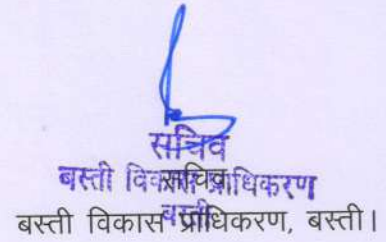 सचिव
बस्ती विकास प्राधिकरण
सचिव
बस्ती
बस्ती विकास प्राधिकरण, बस्ती।